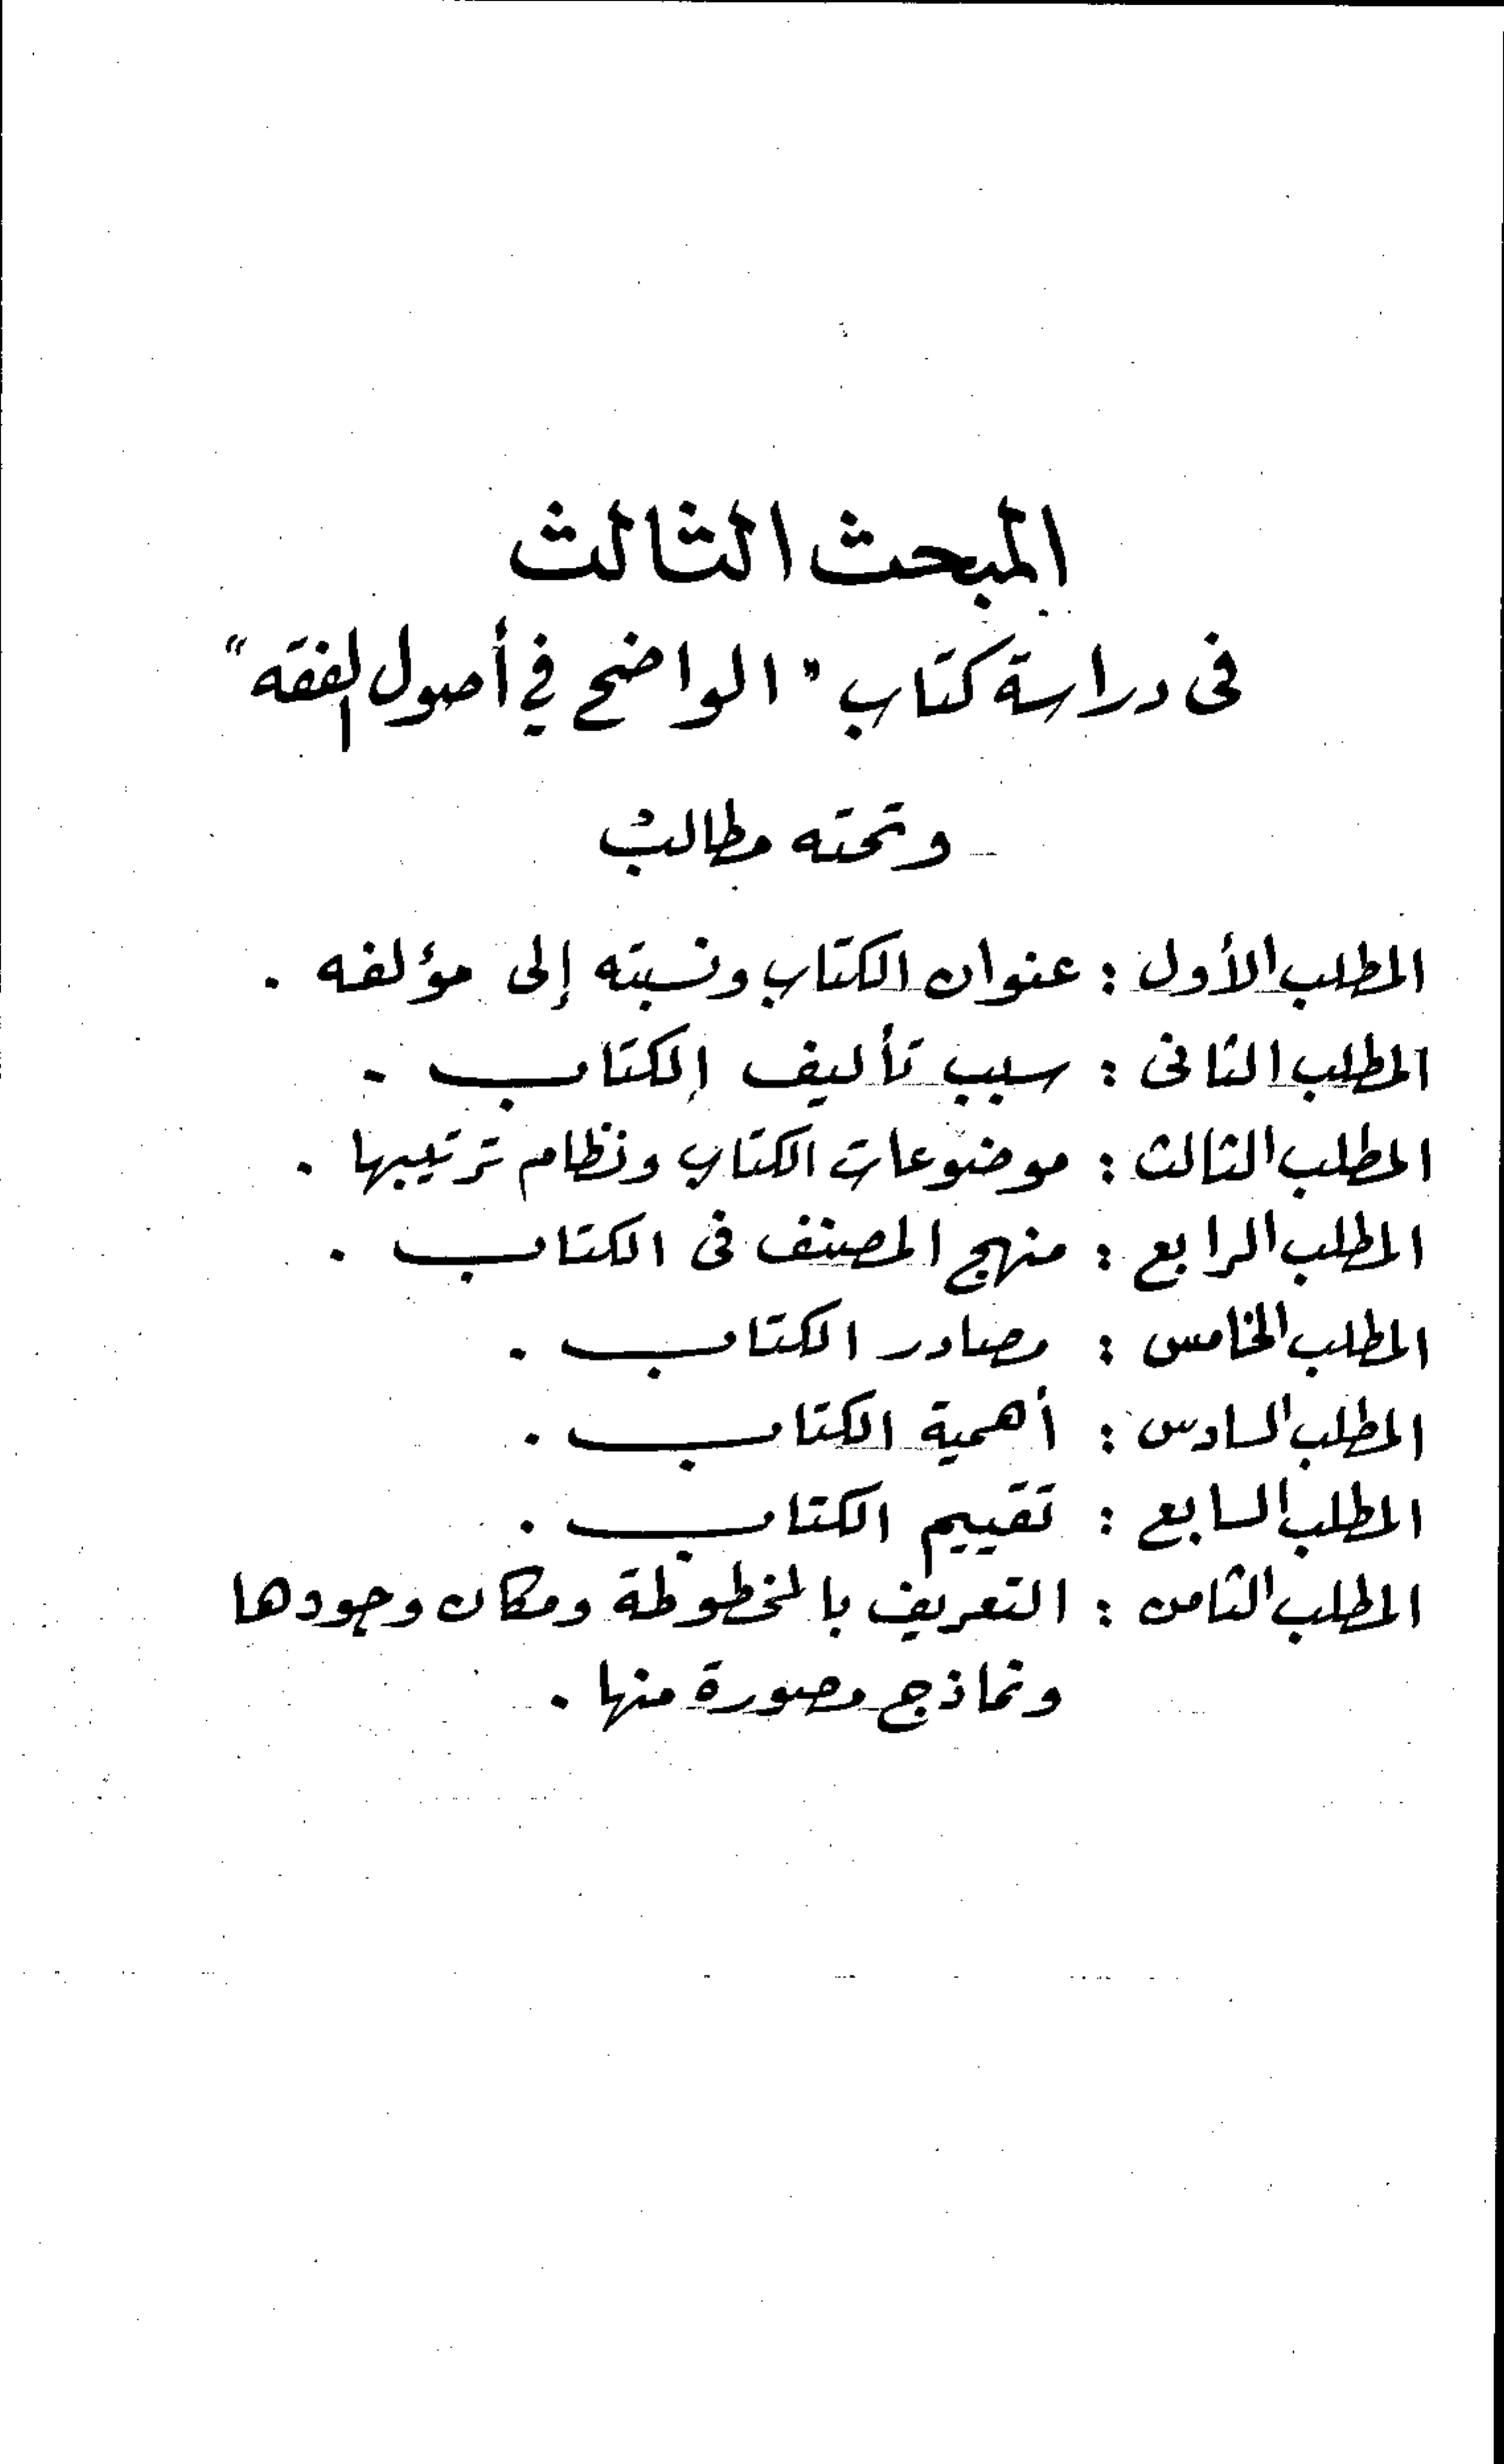 المبحث الثالث
فى دراسة كتاب "الواضح في أصول الفقه"
وتحته مطالب
المطلب الأول : عنوان الكتاب ونسبته إلى مؤلفه .
المطلب الثانى : سبب تأليف الكتاب .
المطلب الثالث : موضوعات الكتاب ونظام ترتيبها .
المطلب الرابع : منهج المصنف فى الكتاب .
المطلب الخامس : مصادر الكتاب .
المطلب السادس : أهمية الكتاب .
المطلب السابع : تقييم الكتاب .
المطلب الثامن : التعريف بالمخطوطة ومكان وجودها
ونماذج مصورة منها .